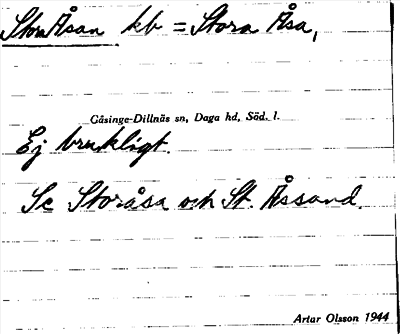 Stora Åsan kb = Stora Åsa,
Gåsinge-Dillnäs sn, Daga hd, Söd. l.
Ej brukligt.
Se Storåsa och St. Åssand.
Artar Olsson 1944